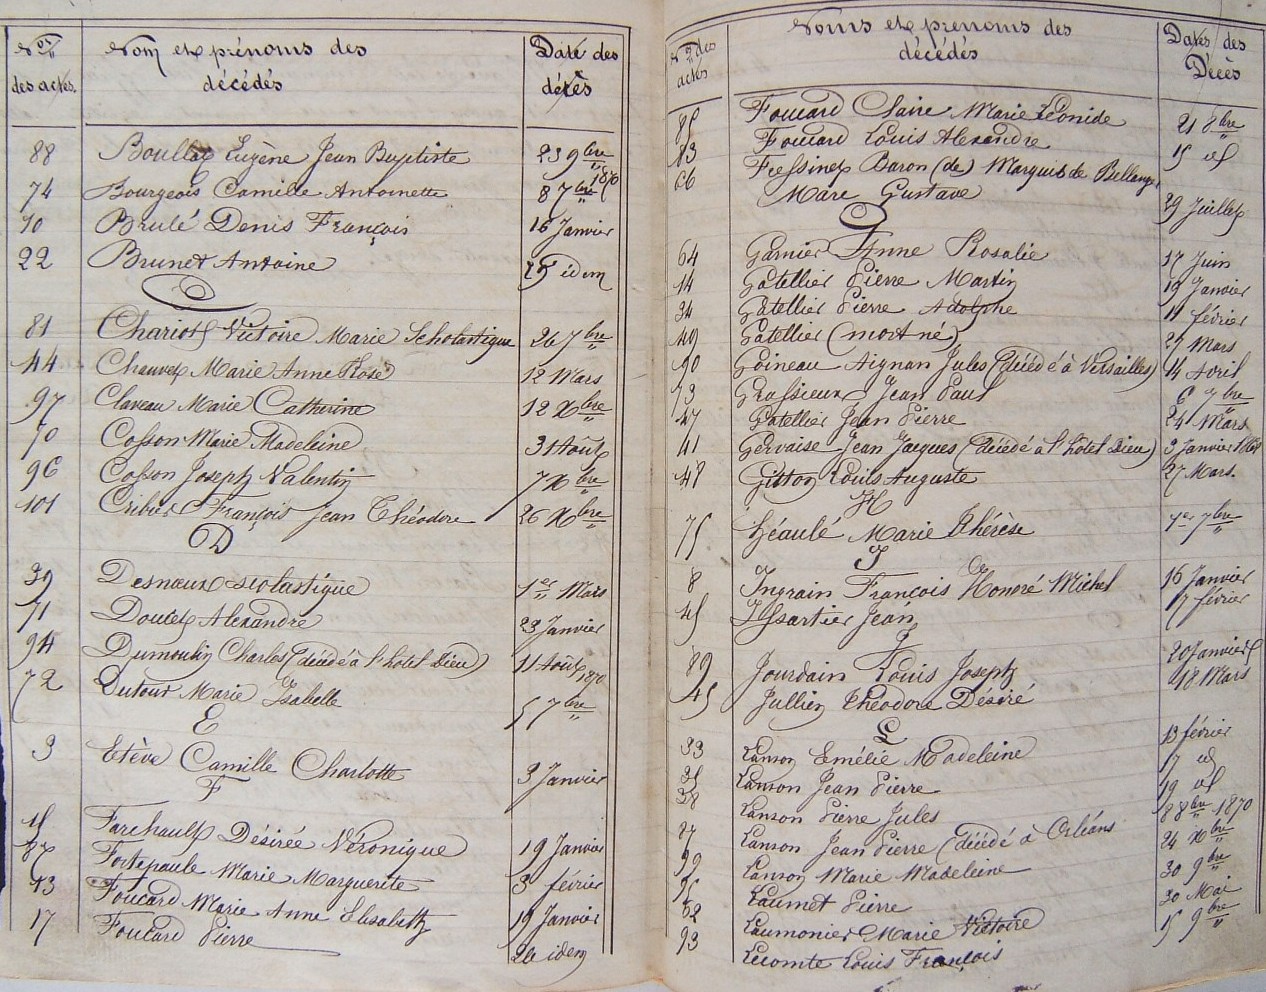 Nos des actes. Nom et prénoms des décédés Date des décès
88 Boullet Eugène Jean Baptiste 23 9bre
1870
74 Bourgeois Camille Antoinette 8 7bre
10 Brulé Denis François 16 Janvier
22 Brunet Antoine 25 idem
C
81 Chariot Victoire Marie Scholastique 26 7bre
44 Chauvet Marie Anne Rose 12 Mars
97 Claveau Marie Catherine 12 Xbre
70 Cosson Marie Madeleine 31 Août
96 Cosson Joseph Valentin 7 Xbre
101 Cribier François Jean Théodore 26 Xbre
D
39 Desnoeux Scolastique 1er Mars
71 Doulet Alexandre 23 Janvier
94 Dumoulin Charles (décédé à l'hôtel Dieu) 11 Août 1870
72 Dutour Marie Isabelle 5 7bre
E
3 Etève Camille Charlotte 3 Janvier
F
15 Farehault Désirée Véronique 19 Janvier
27 Fortepaule Marie Marguerite 3 février
13 Foucard Marie Anne Elisabeth 19 Janvier
17 Foucard Pierre 20 idem
Nos des actes Noms et prénoms des décédés Dates des Décès
85 Foucard Claire Marie Léonide 21 8bre
83 Foucard Louis Alexandre 15 id
66 Fressinet Baron (de) Marquis de Bellanger
Marc Gustave 29 Juillet
G
64 Garnier Anne Rosalie 17 Juin
14 Gatellier Pierre Martin 19 Janvier
34 Gatellier Pierre Adolphe 11 février
49 Gatellier (mort né) 27 Mars
90 Goineau Aignan Jules (décédé à Versailles) 14 Avril
73 Grassieux Jean Paul 6 7bre
47 Gatellier Jean Pierre 24 Mars
41 Gervaise Jean Jacques (décédé à l'hôtel Dieu) 3 Janvier
48 Gitton Louis Auguste 27 Mars.
H
75 Héaulé Marie Thérèse 1er 7bre
I
8 Ingrain François Honoré Michel 16 Janvier
45 Issartier Jean 17 février
J
89 Jourdain Louis Joseph 20 Janvier
45 Jullien Théodore Désiré 18 Mars
L
33 Lanson Emélie Madeleine 13 février
35 Lanson Jean Pierre 17 id
38 Lanson Pierre Jules 19 id
87 Lanson Jean Pierre (décédé à Orléans 8 8bre 1870
99 Lanson Marie Madeleine 24 Xbre
95 Laumet Pierre 30 9bre
62 Laumonier Marie Victoire 30 Mai
93 Lecomte Louis François 15 9bre